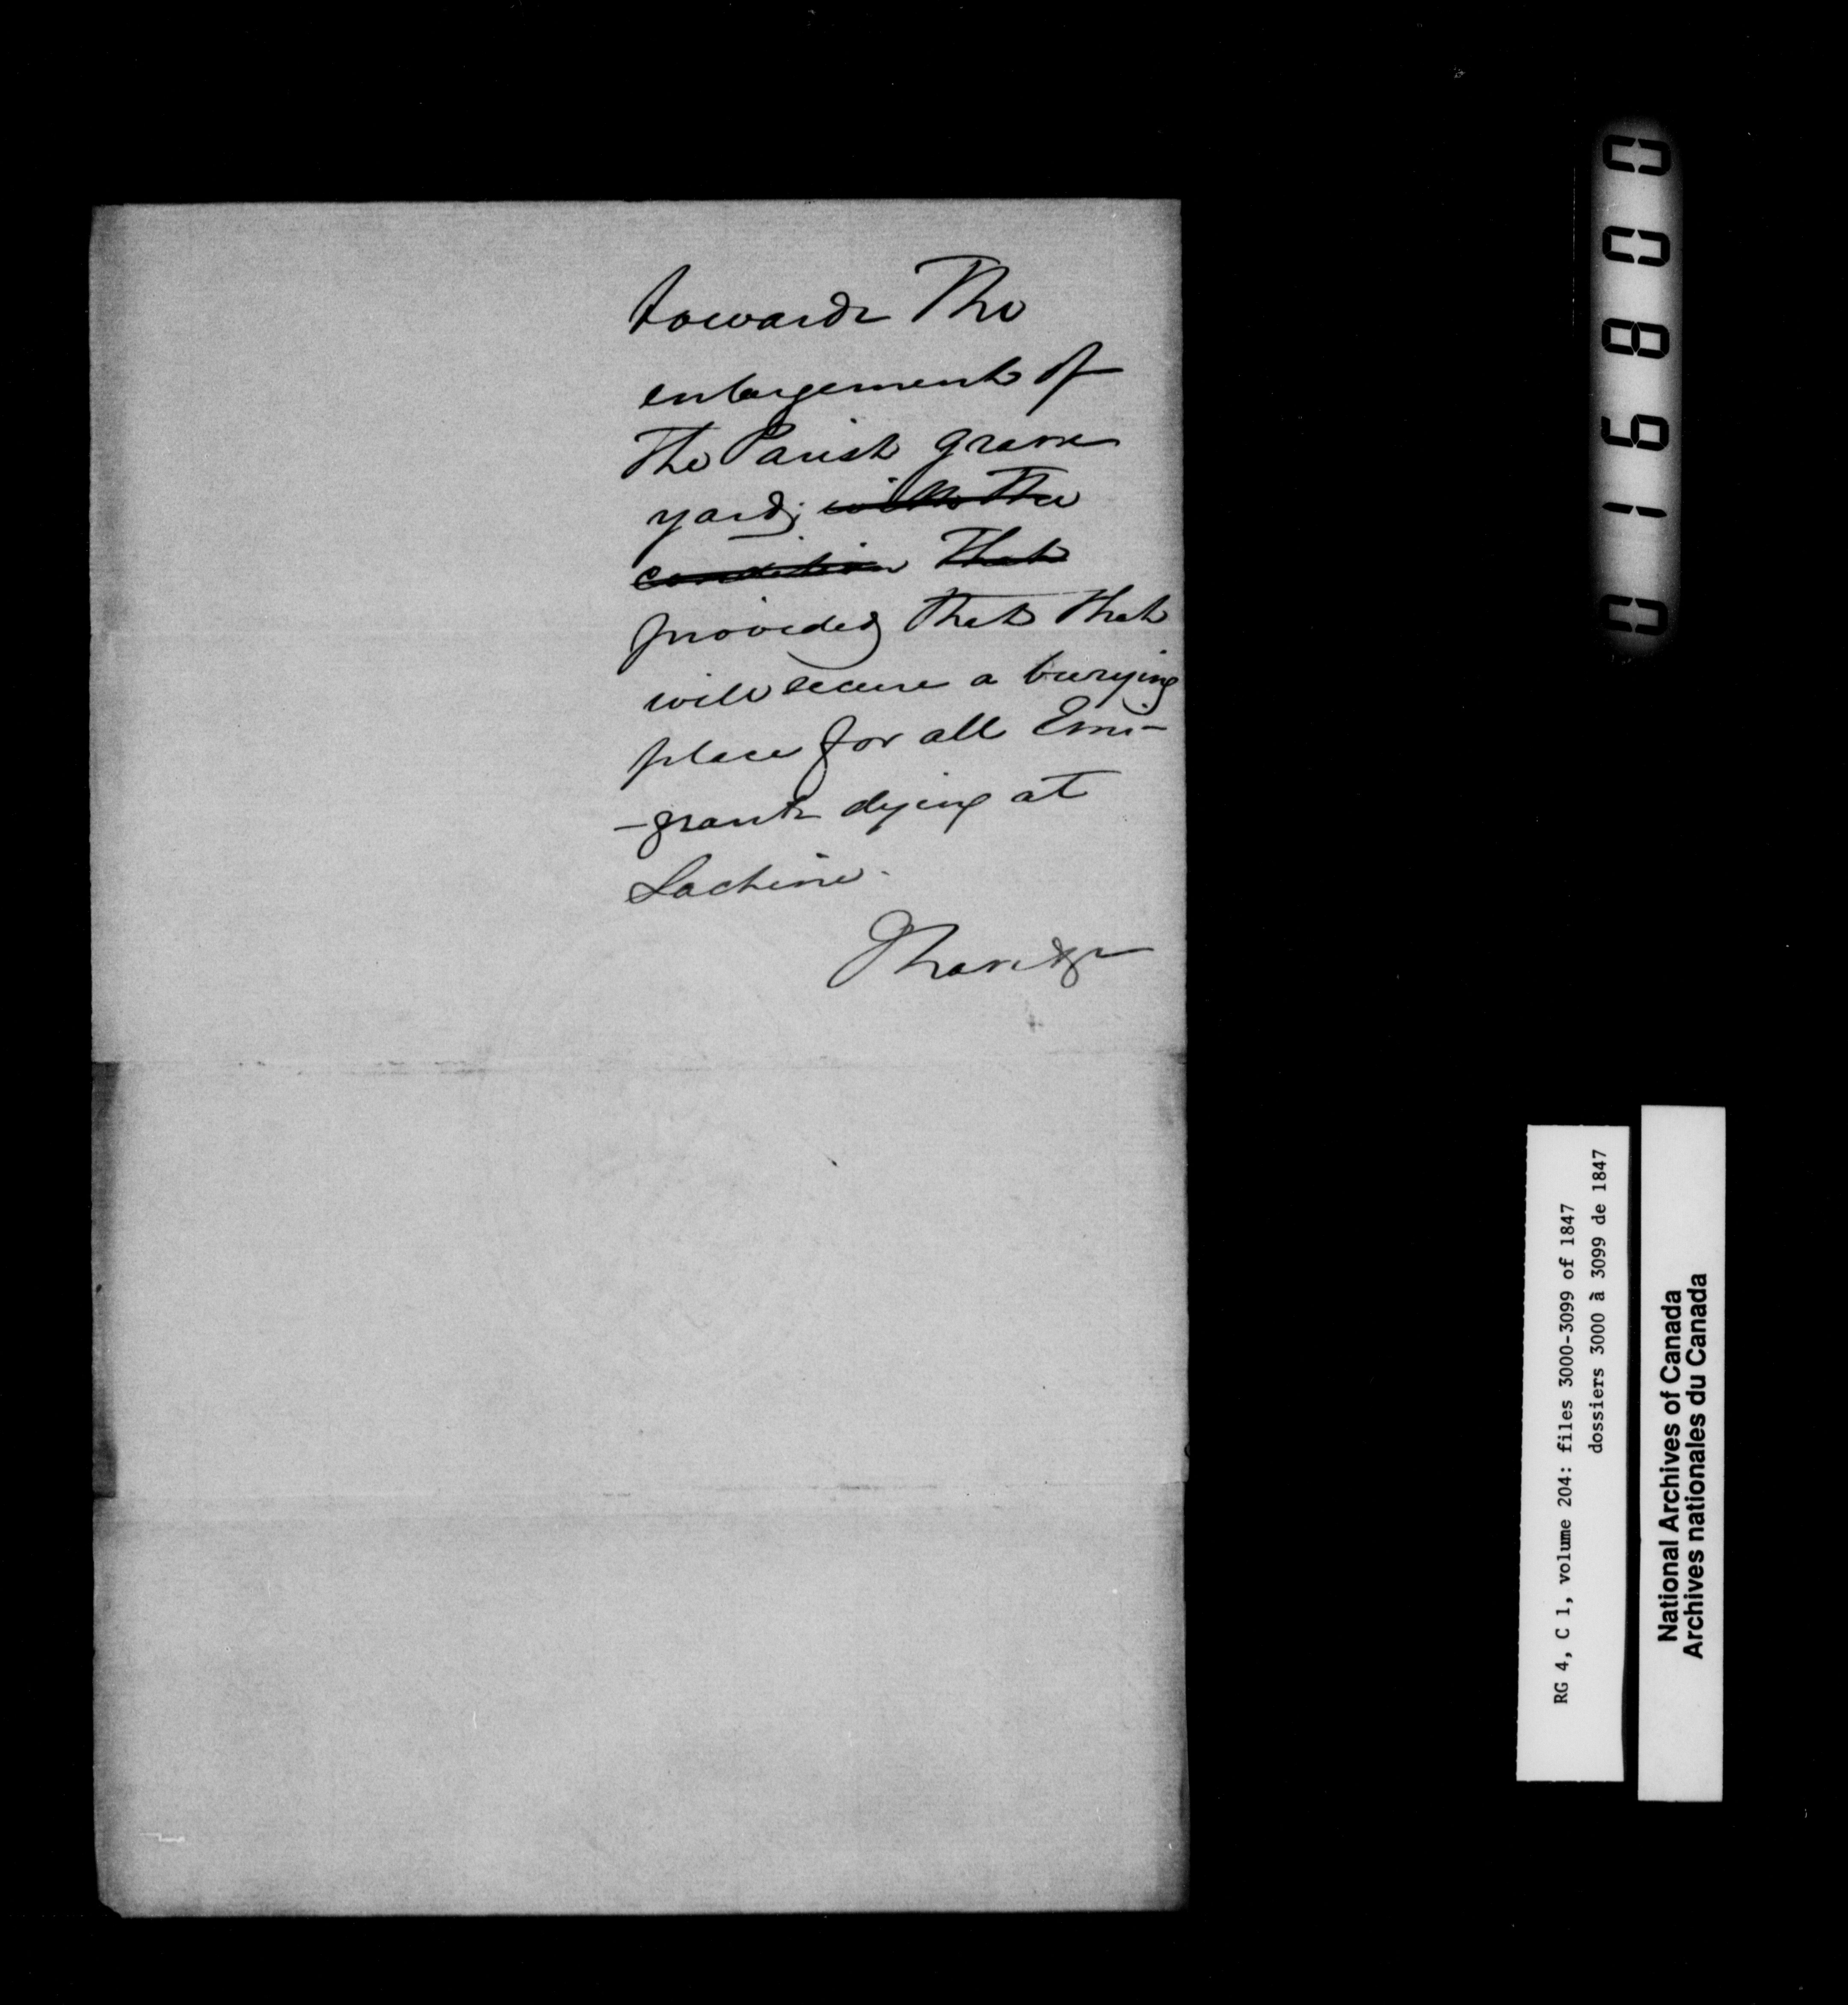 towards The
enlargement of
The Parish grave
yard; with The
condition That
provided That that
will secure a burying
place for all Emi-
-grants dying at
Lachine.
016800
RG 4, C 1, volume 204: files 3000-3099 of 1847
dossiers 3000 à 3099 de 1847
National Archives of Canada
Archives nationales du Canada